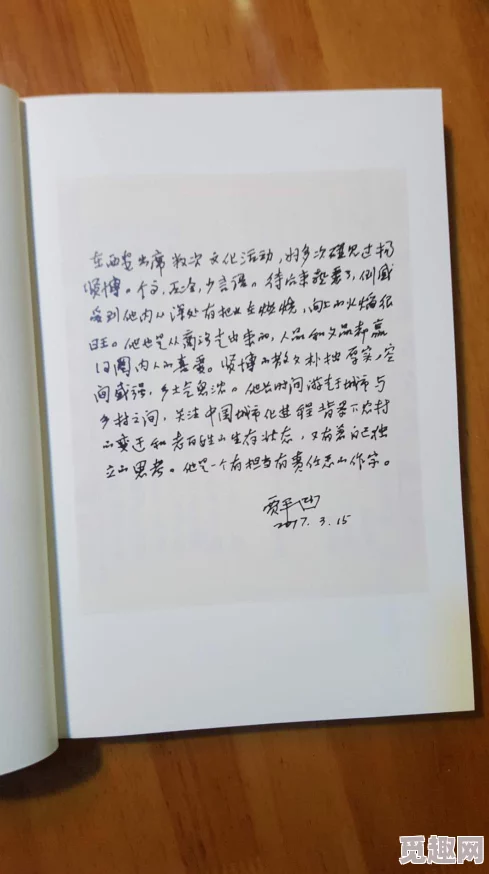 在西安出席数次文化活动，好多次碰见过杨
博。个矮，不合，少言语。待后来熟悉了，倒感
受到他内心深处有把火在燃烧，向上的火焰很
旺。他也是从商洛走出来的，人品和文品都赢
得圈内人的喜爱。博的散文朴拙厚实，空
间感强，乡土气息浓。他长时间游走于城市与
乡村之间，关注中国城市化进程背景下农村
的变迁和老百姓的生存状态，又有着自己独
立的思考。他是一个有担当有责任心的作家。
贾平凹
2017.3.15
觅趣网